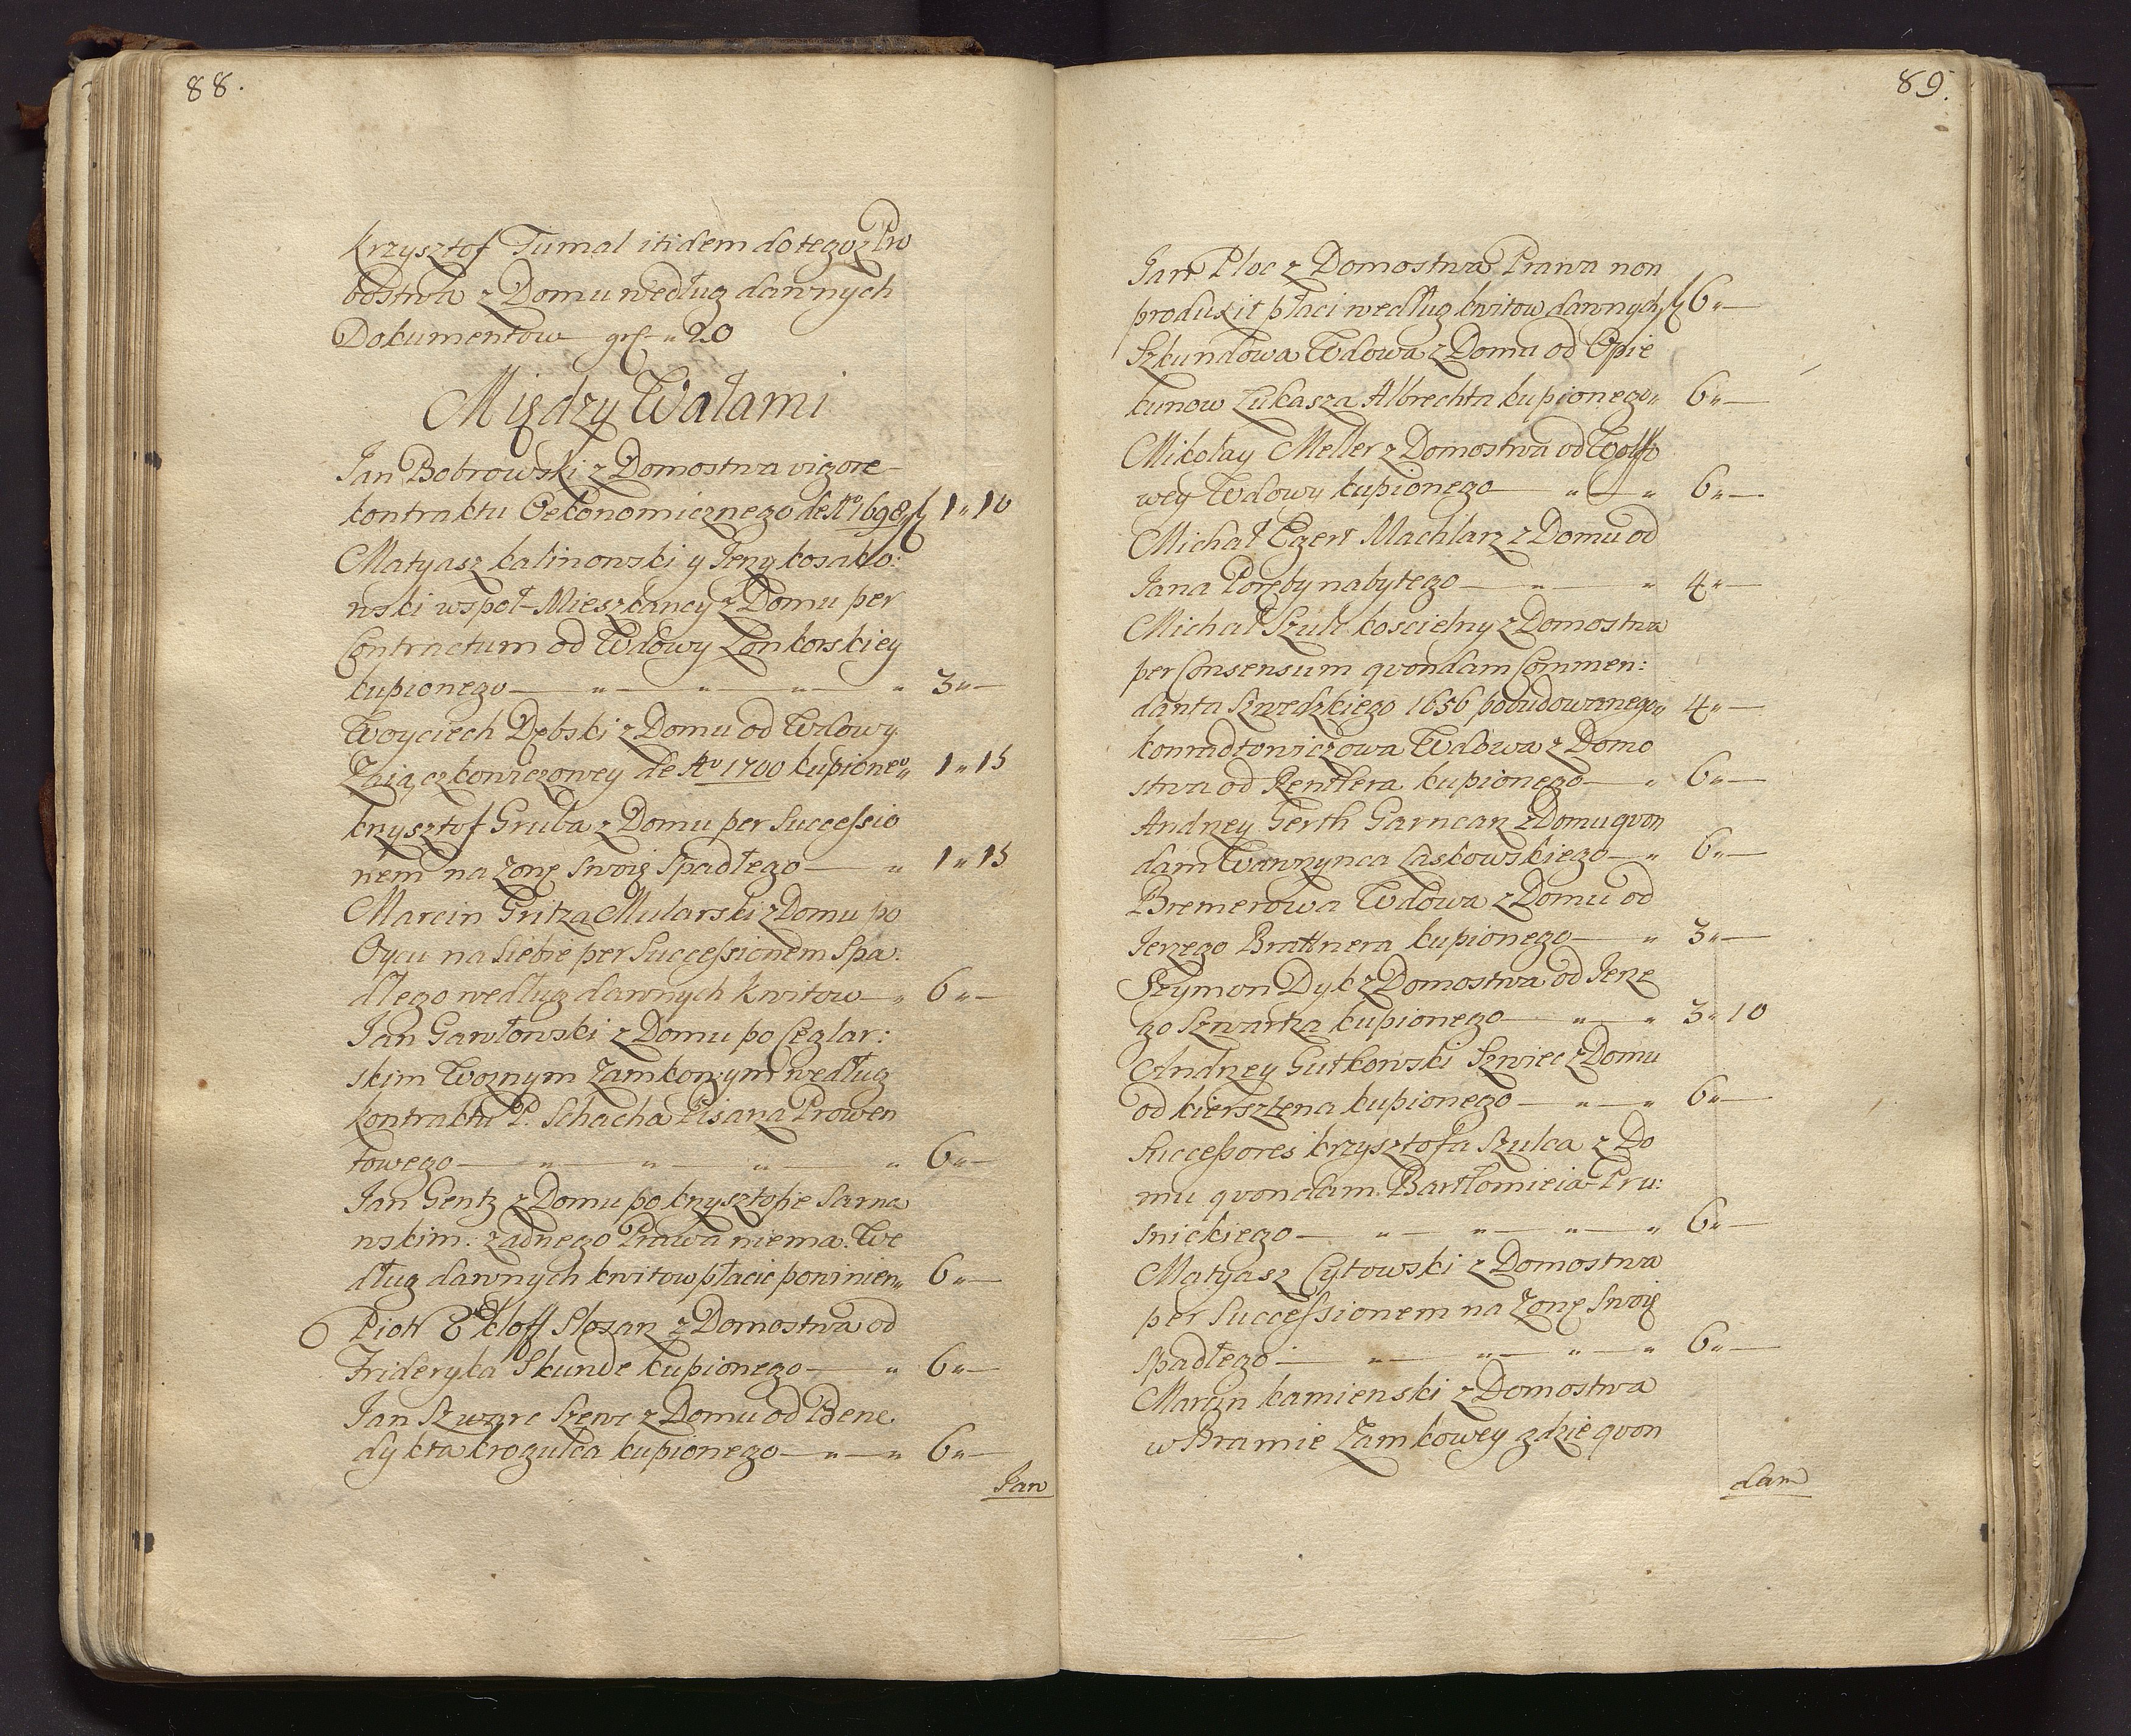 88.
Krzysztof Tumal itidem do tegoz Pro
bostwa z Domu według dawnych
Dokumentow grs „ 20
Między Wałami
Jan Bobrowski z Domostwa vigore
kontraktu Oekonomicznego de Aº 1698 „ f 1 „ 10
Matyasz Kalinowski y Jerzy Kosako:
wski wspoł-Mieszkancy z Domu per
Contractum od Wdowy Lonkorskiey
kupionego — „ — „ — „ — „ 3 „ —
Woyciech Dębski z Domu od Wdowy
Zaiączkowiczowey de Aº 1700 kupioneº „ 1 „ 15
Krzysztof Gruba z Domu per Successio
nem na Zonę Swoię Spadłego — „ 1 „ 15
Marcin Gritza Mularski z Domu po
Oycu na Siebie per Successionem Spa:
dłego według dawnych Kwitow — „ 6 „ —
Jan Gawłowski z Domu po Ceglar:
skim Woznym Zamkowym według
kontraktu P. Schacha Pisarza Prowen
towego — „ — „ — „ — „ 6 „ —
Jan Gentz z Domu po Krzysztofie Sarna
wskim: zadnego Prawa niema. We
dług dawnych kwitow płacic powinien „ 6 „ —
Piotr Ekloff Slosarz z Domostwa od
Fryderyka Skunde kupionego — „ 6 „ —
Jan Szwarc Szewc z Domu od Bene
dykta Krogulca kupionego — „ — „ 6 „ —
Jan
89.
Jan Ploc z Domostwa Prawa non
produxit płaci według kwitow dawnych f 6 „ —
Szkundowa Wdowa z Domu od Opie
kunow Łukasza Albrechta kupionego „ 6 „ —
Mikołay Meller z Domostwa od Wolffo
wey Wdowy kupionego — „ — „ 6 „ —
Michał Egert Machlarz z Domu od
Jana Poręby nabytego — „ — „ 4 „ —
Michał Szulc koscielny z Domostwa
per Consensum qvondam Commen:
danta Szwedzkiego 1656 pobudowanego „ 4 „ —
Wdowa z Domo
stwa od Rentlera kupionego — „ 6 „ —
Andrzey Gerth Garncarz z Domu qvon
dam Wawrzynca Laskowskiego — „ 6 „ —
Bremerowa Wdowa z Domu od
Jerzego Brattnera kupionego — „ 3 „ —
Szymon Dyk z Domostwa od Jerze
go Szwartza kupionego — „ — „ 3 „ 10
Andrzey Gutkowski Szwiec z Domu
od Kiersztena kupionego — „ — „ 6 „ —
Successores Krzysztofa Szulca z Do
mu qvondam Bartłomieia Pru:
snickiego — „ — „ — „ — „ 6 „ —
Matyasz Cytowski z Domostwa
per Successionem na Zonę Swoię
spadłego — „ — „ — „ — „ 6 „ —
Marcin Kamienski z Domostwa
w Bramie Zamkowey gdzie qvon
dam